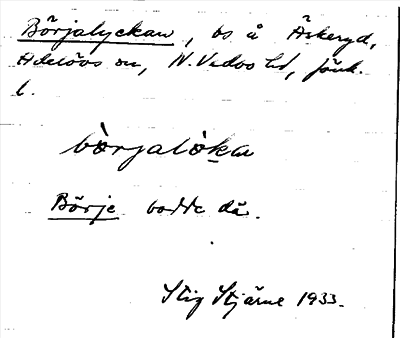 Börjalyckan, bs å Äskeryd,
Adelövs sn, N. Vedbo hd, Jönk.
l.
bòrjalòkan
Börje bodde där.
Stig Stjärne 1933.